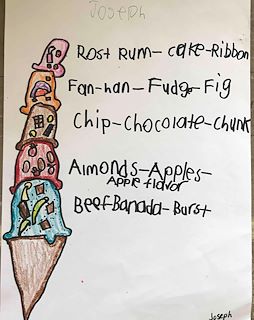 Joseph
Rost Rum-cake-Ribbon
Fan-han-Fudge-Fig
Chip-chocolate-chunk
Almonds-Apples-
Apple flavor
Beef-Banada-Burst
Joseph